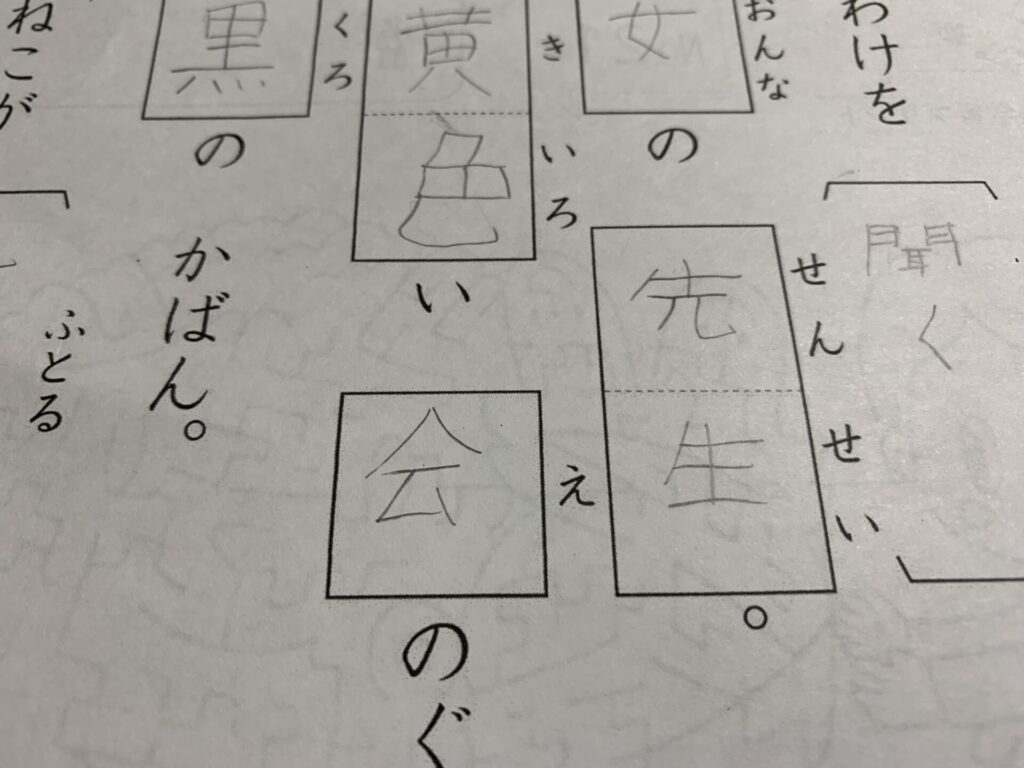 わけを
聞く
おんな
女の
せんせい
先生。
きいろ
黄色い
え
会のぐ
くろ
黒の
かばん。
ねこが
ふとる